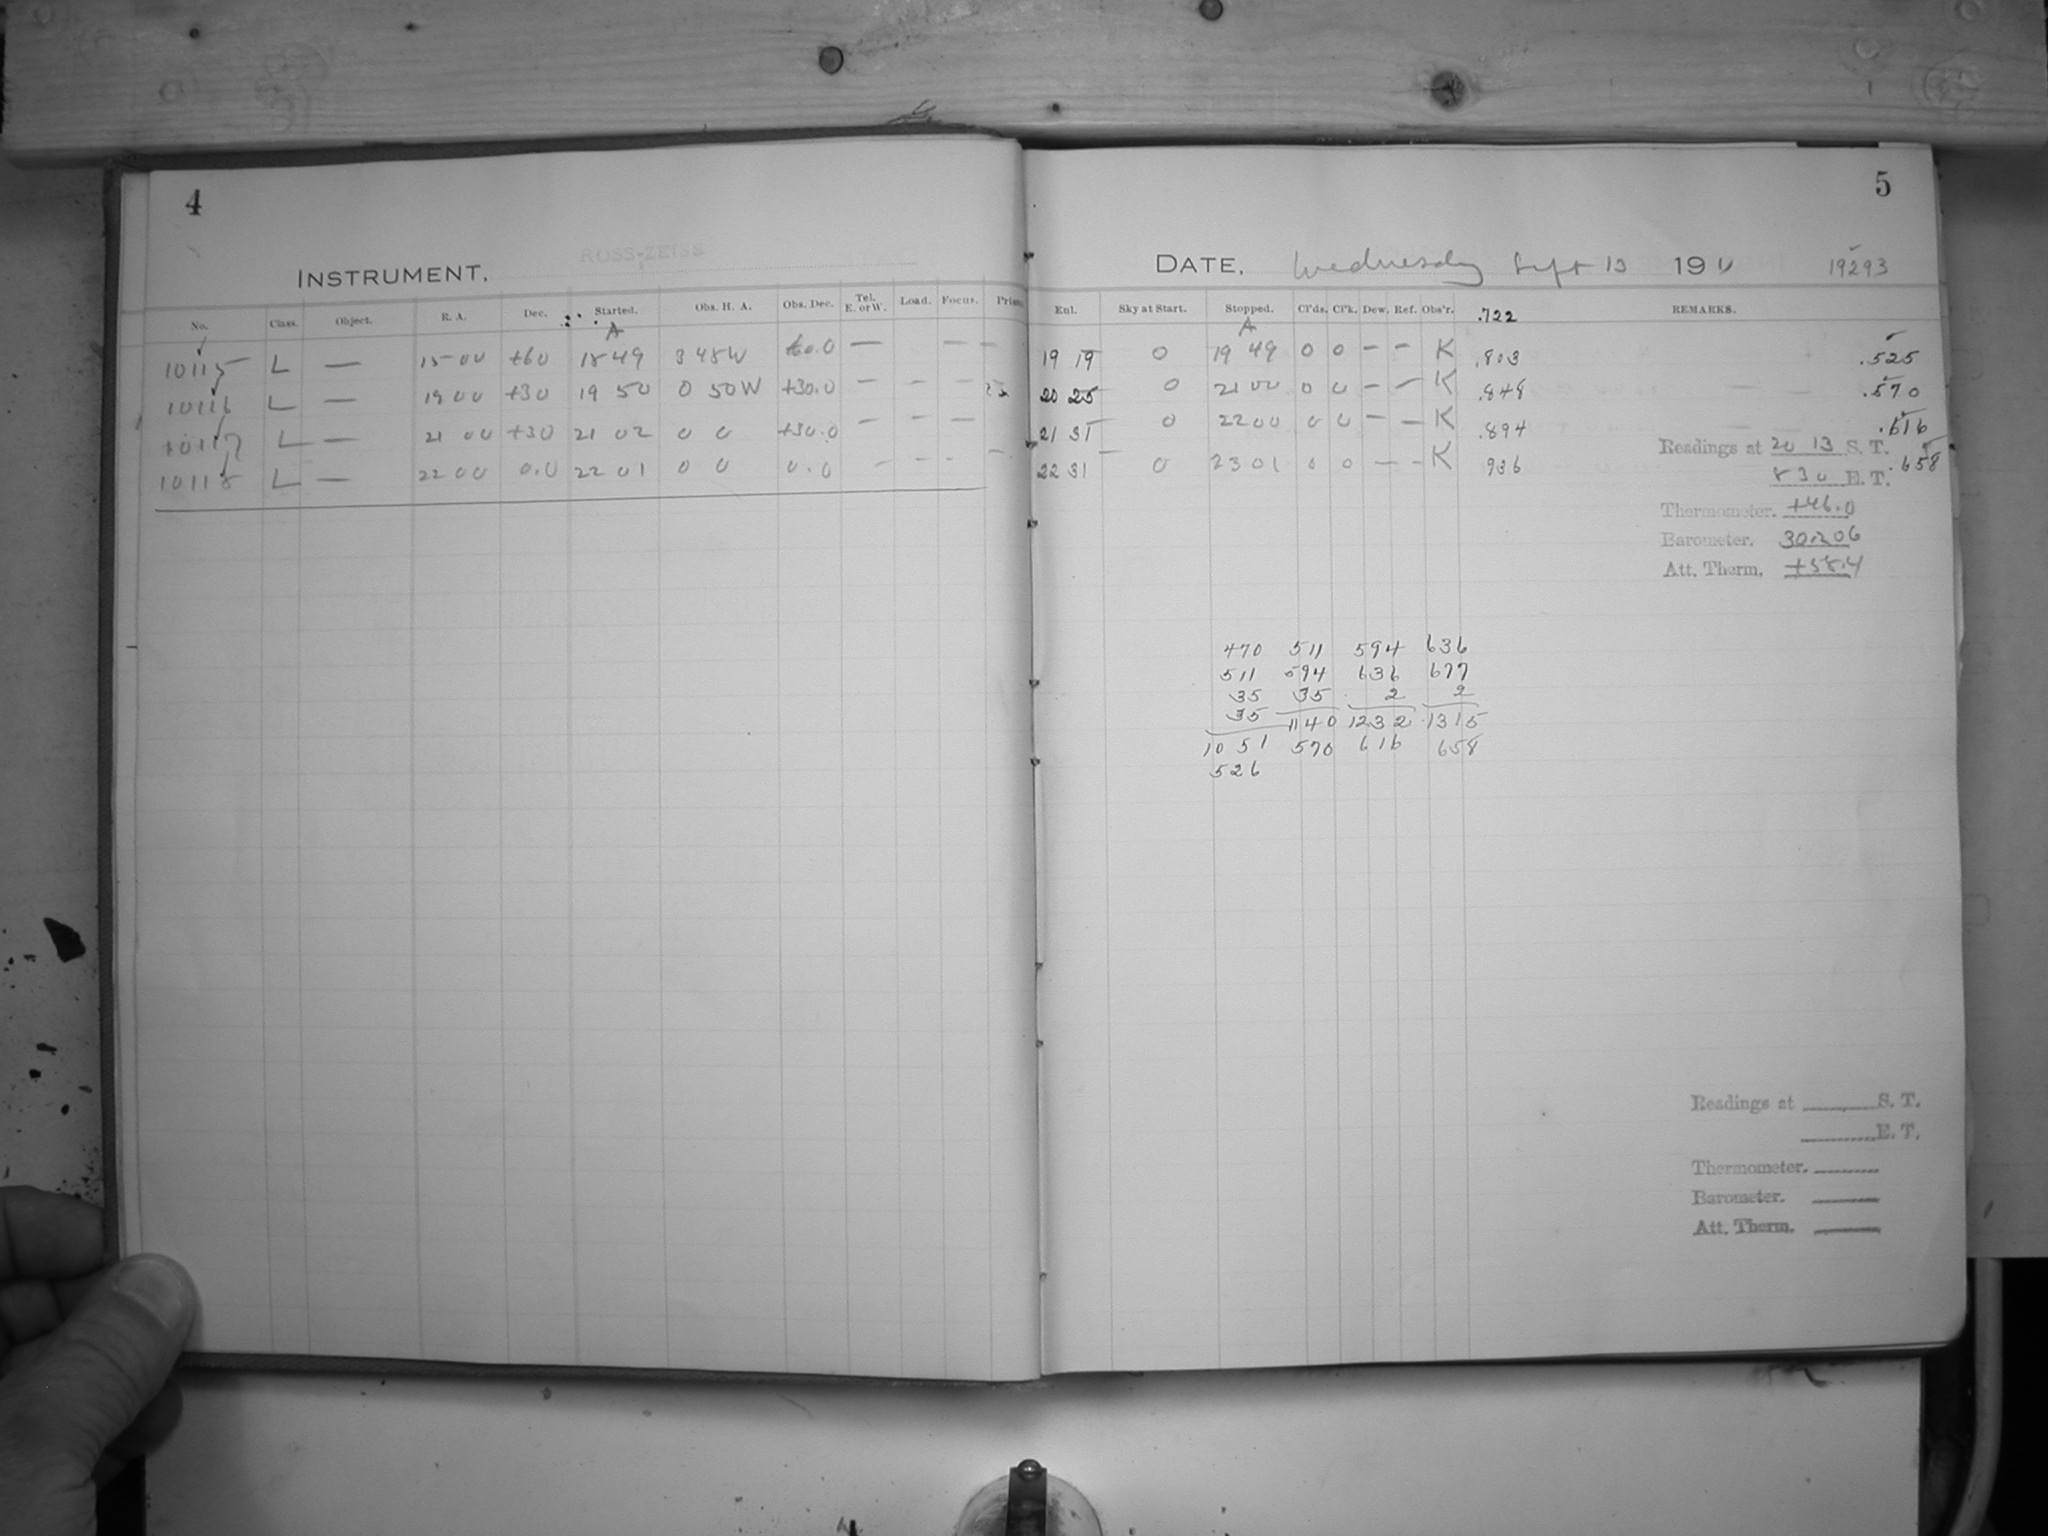 4
ROSS-ZEISS
INSTRUMENT.
No. Class. Object. R. A. Dec. Started. Obs. H. A. Obs. Dec. Tel. E. or W. Load. Focus. Prism
A
10115 L — 15 00 +60 18 49 3 48W 60.0 — — —
10116 L — 19 00 +30 19 50 0 50W +30.0 — - - -
10117 L — 21 00 +30 21 02 0 0 +30.0 — - — —
10118 L — 22 00 0.0 22 01 0 0 0.0 - - - -
5
DATE, Wednesday Sept 13 1911 19293
Eul. Sky at Start. Stopped. Cl'ds. Cl'k. Dew. Ref. Obs'r. .722 REMARKS.
A
19 19 0 19 49 0 0 - - K .803 .525
20 25 0 21 00 0 0 - - K .848 .570
21 31 0 22 00 0 0 - - K .894 .616
22 31 0 23 01 0 0 - - K 936 .658
Readings at 20 13 S. T.
8 30 E. T.
Thermometer. +46.0
Barometer. 30.206
Att. Therm. +58.4
470 511 594 636
511 594 636 677
35 35 2 2
35 1140 1232 1315
1051 570 616 658
526
Readings at S. T.
E. T.
Thermometer.
Barometer.
Att. Therm.